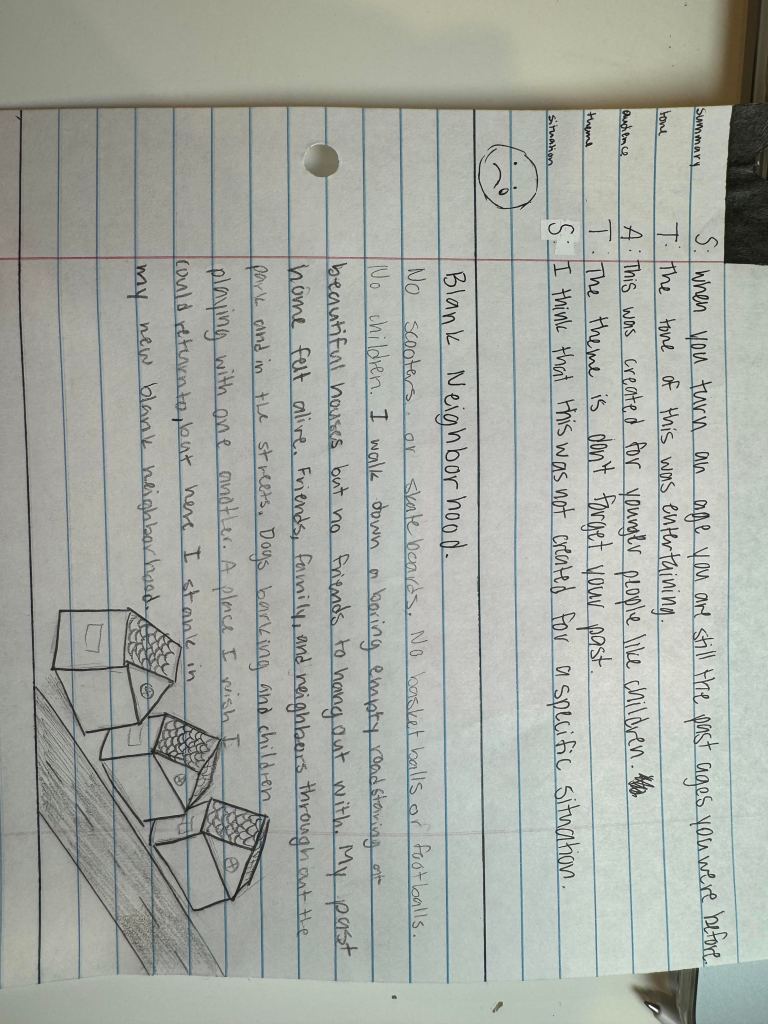 summary S: when you turn an age you are still the past ages you were before.
tone T: The tone of this was entertaining.
audience A: This was created for younger people like children.
theme T: The theme is don't forget your past.
situation S: I think that this was not created for a specific situation.
Blank Neighborhood.
No scooters, or skateboards. No basketballs or footballs.
No children. I walk down a boring empty road staring at
beautiful houses but no friends to hang out with. My past
home felt alive. Friends, family, and neighbors throughout the
park and in the streets. Dogs barking and children
playing with one another. A place I wish I
could return to, but here I stank in
my new blank neighborhood.